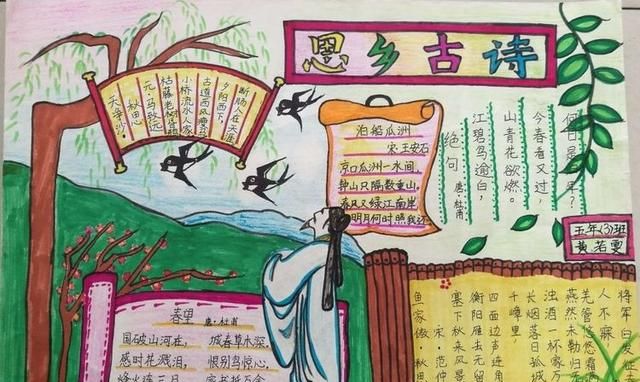 恩乡古诗
天净沙·
秋思
元·马致远
枯藤老树昏鸦
小桥流水人家
古道西风瘦马
夕阳西下，
断肠人在天涯
泊船瓜洲
宋·王安石
京口瓜洲一水间，
钟山只隔数重山。
春风又绿江南岸
明月何时照我还
绝句
唐·杜甫
江碧鸟逾白，
山青花欲燃。
今春看又过，
何日是归年？
五年(3)班
黄若雯
春望
唐·杜甫
国破山河在， 城春草木深。
感时花溅泪， 恨别鸟惊心。
烽火连三月 家书抵万金
鱼家傲 秋思
宋·范仲
塞下秋来风景
衡阳雁去无留
四面边声连角
千嶂里，
长烟落日孤城
浊酒一杯家
燕然未勒归
羌管悠悠霜满
人不寐，
将军白发征